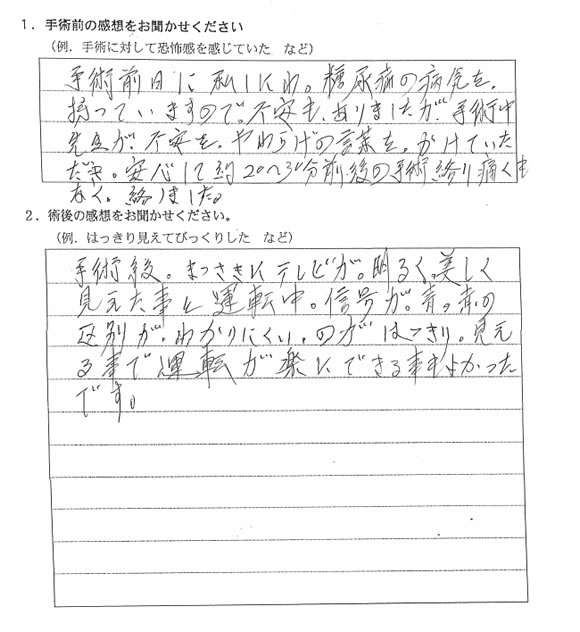 1．手術前の感想をお聞かせください
（例．手術に対して恐怖感を感じていた　など）
手術前日に私しにわ。糖尿病の病気を、
持っていますので。不安も、ありましたが、手術中
先生が、不安を、やわらげの言葉を。かけていた
だき。安心して約20〜30分前後の手術終り痛くも
なく。終りました。
2．術後の感想をお聞かせください。
（例．はっきり見えてびっくりした　など）
手術後。まっさきにテレビが。明るく。美しく
見えた事と運転中。信号が。青。赤の
区別が、わかりにくい。のがはっきり。見え
る事で運転が楽にできる事もよかった
です。